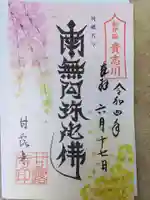 貴志川
令和四年
六月十七日
奉拝
南無阿弥陀佛
甘露寺